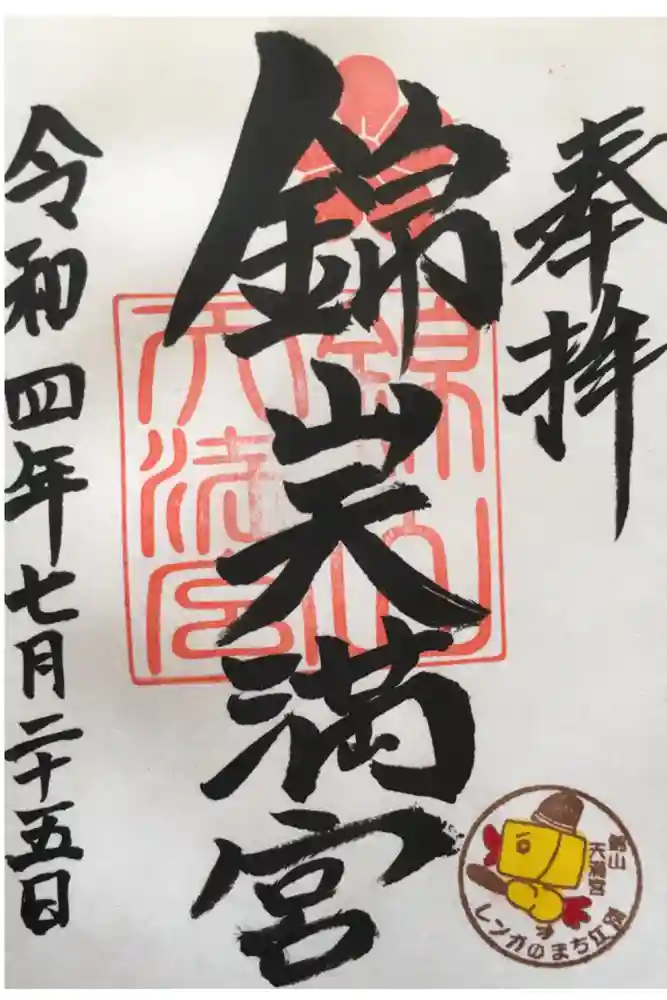 奉拝
錦山天満宮
令和四年七月二十五日
錦山
天満宮
錦山
天満宮
レンガのまち江別